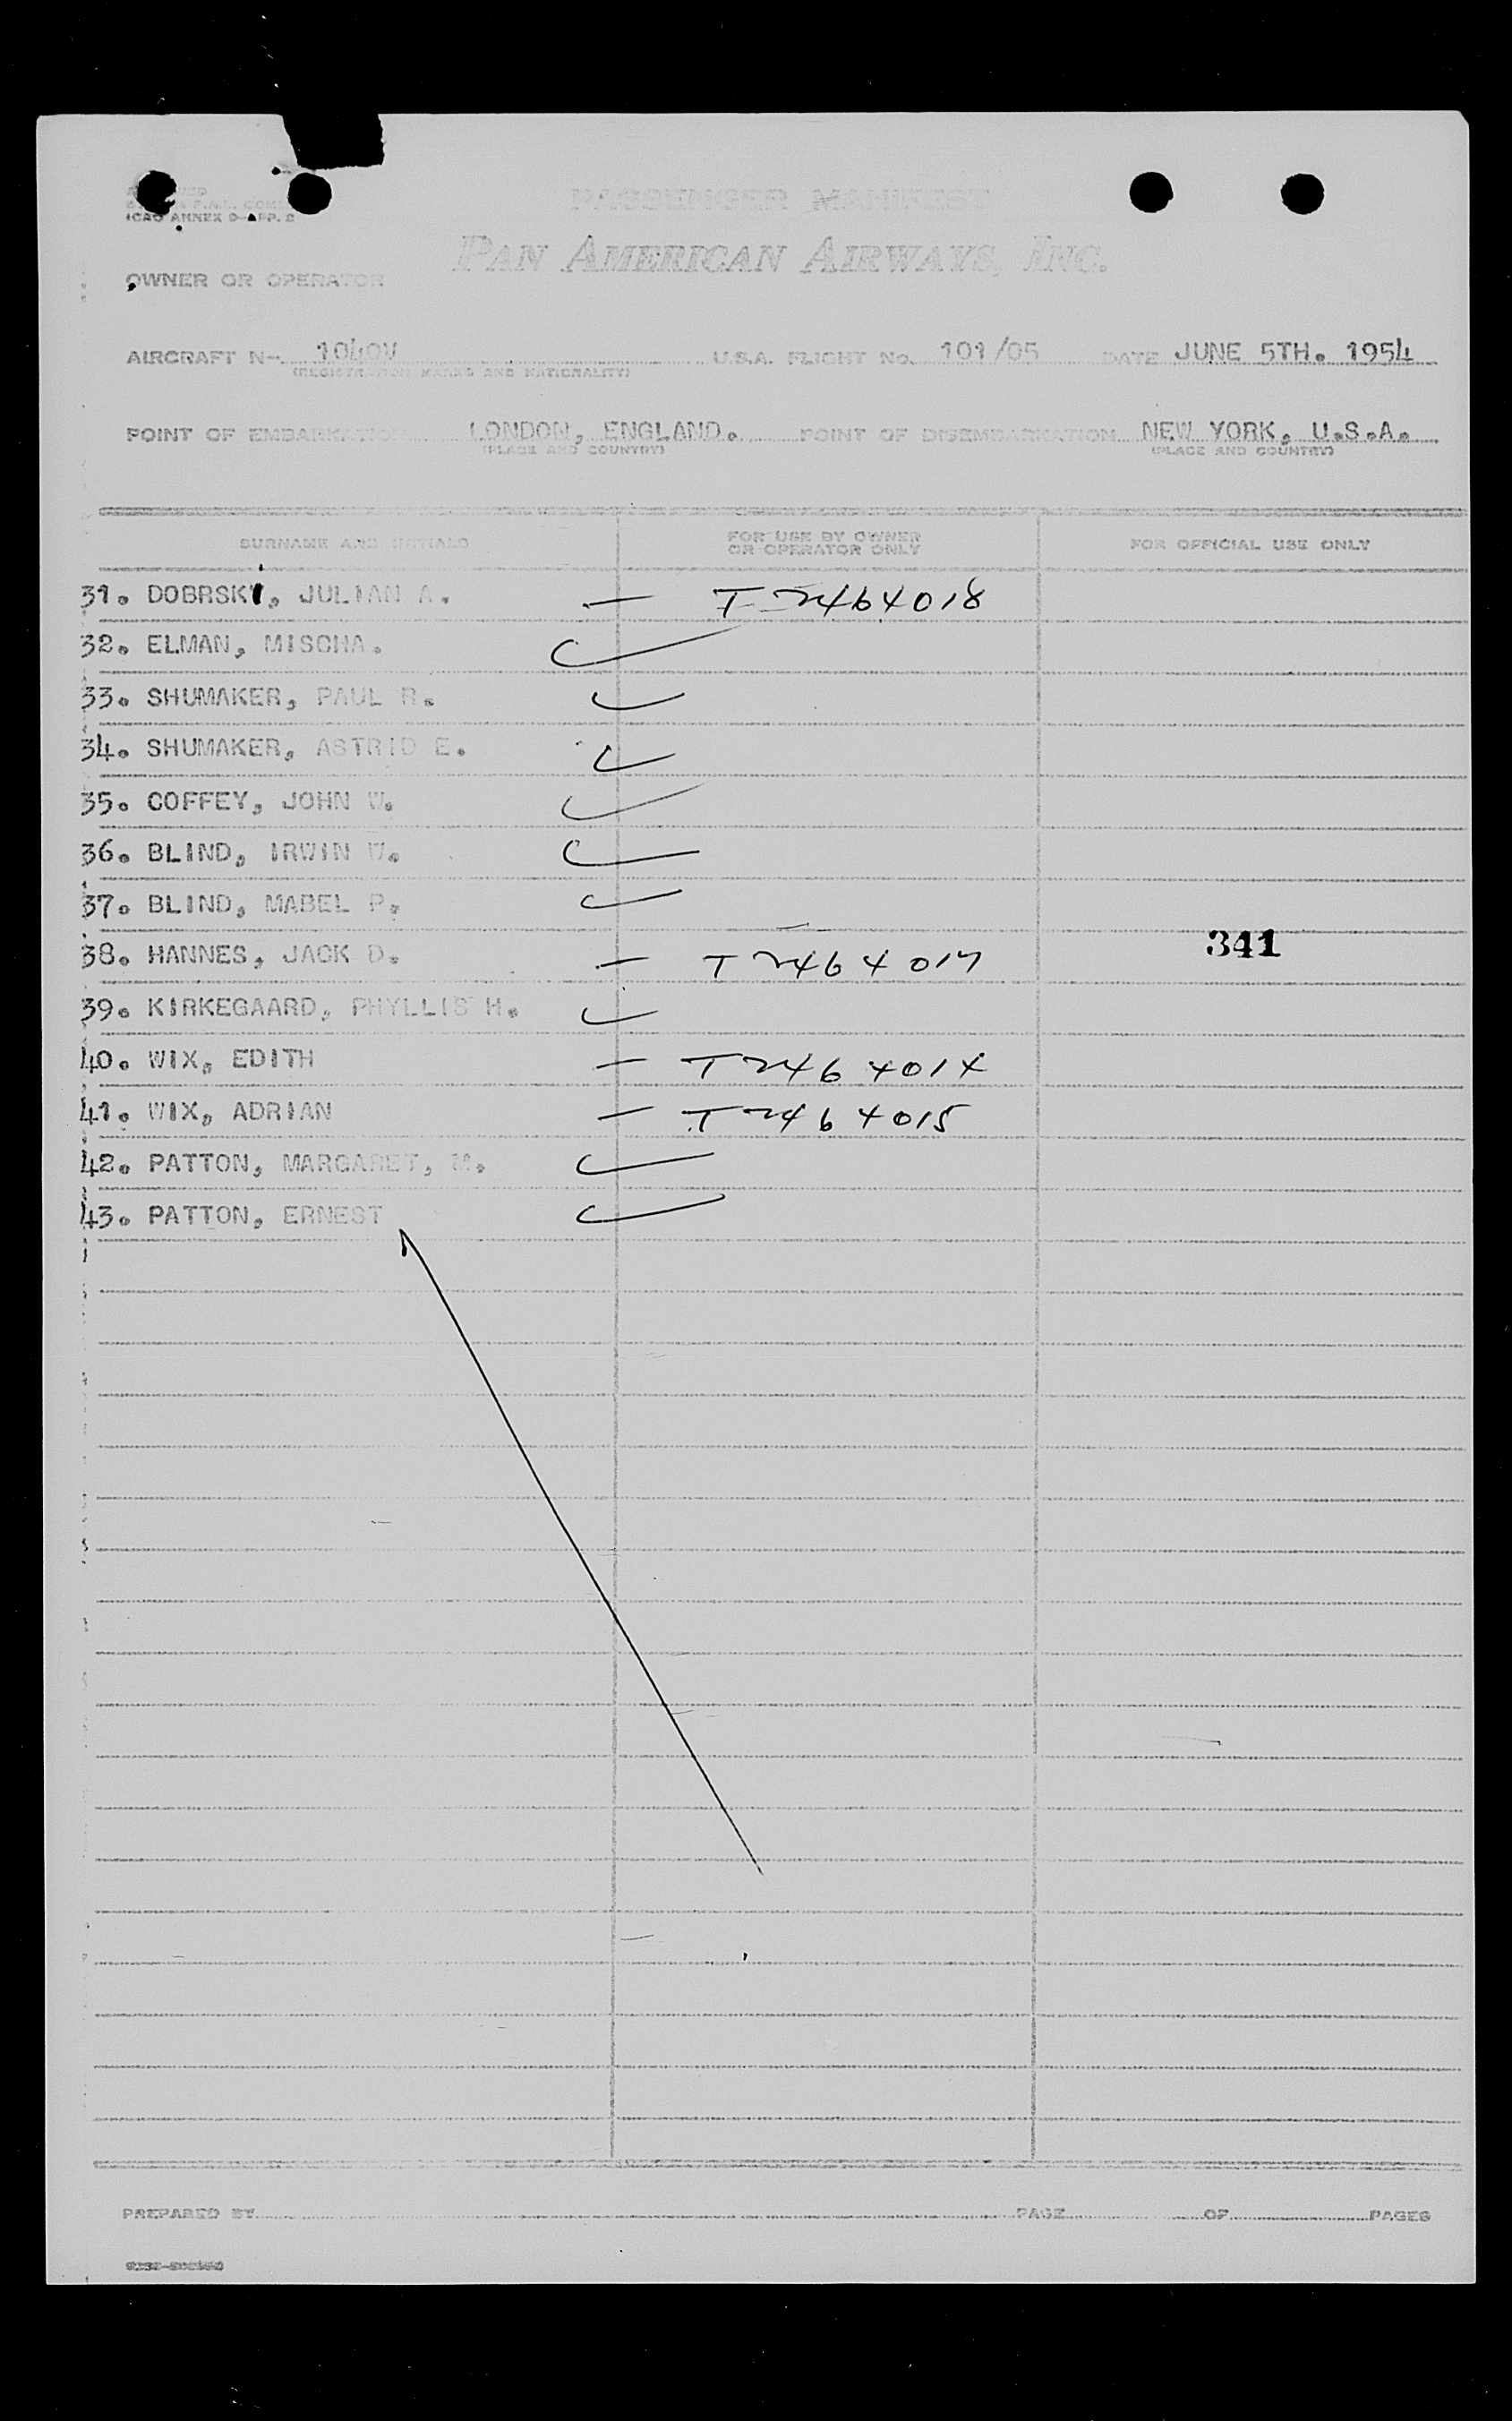 ICAO ANNEX 9-APP. 2
PASSENGER MANIFEST
PAN AMERICAN AIRWAYS, INC.
OWNER OR OPERATOR
AIRCRAFT No. 1040V U.S.A. FLIGHT No. 101/05 DATE JUNE 5TH. 1954
(REGISTRATION MARKS AND NATIONALITY)
POINT OF EMBARKATION LONDON, ENGLAND. POINT OF DISEMBARKATION NEW YORK, U.S.A.
(PLACE AND COUNTRY) (PLACE AND COUNTRY)
SURNAME AND INITIALS FOR USE BY OWNER OR OPERATOR ONLY FOR OFFICIAL USE ONLY
31. DOBRSKI, JULIAN A. — T-2464018
32. ELMAN, MISCHA.
33. SHUMAKER, PAUL R.
34. SHUMAKER, ASTRID E.
35. COFFEY, JOHN W.
36. BLIND, IRWIN W.
37. BLIND, MABEL P.
38. HANNES, JACK D. — T 2464017 341
39. KIRKEGAARD, PHYLLIS H.
40. WIX, EDITH — T 2464014
41. WIX, ADRIAN — T 2464015
42. PATTON, MARGARET, M.
43. PATTON, ERNEST
PREPARED BY PAGE OF PAGES